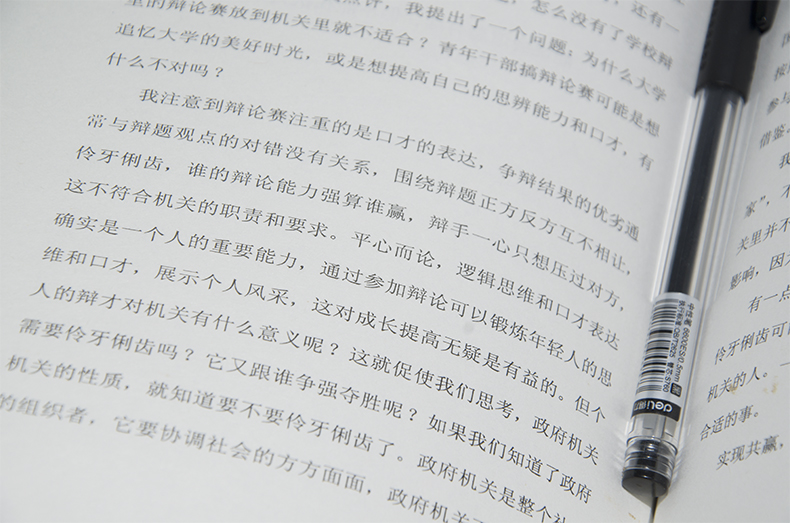 怎么没有了学校辩
里的辩论赛放到机关里就不适合？青年干部搞辩论赛可能是想
点评，我提出了一个问题：为什么大学
还有一
追忆大学的美好时光，或是想提高自己的思辨能力和口才，有
什么不对吗？
我注意到辩论赛注重的是口才的表达，争辩结果的优劣通
常与辩题观点的对错没有关系，围绕辩题正方反方互不相让，
伶牙俐齿，谁的辩论能力强算谁赢，辩手一心只想压过对方，
这不符合机关的职责和要求。平心而论，逻辑思维和口才表达
确实是一个人的重要能力，通过参加辩论可以锻炼年轻人的思
维和口才，展示个人风采，这对成长提高无疑是有益的。但个
人的辩才对机关有什么意义呢？这就促使我们思考，政府机关
需要伶牙俐齿吗？它又跟谁争强夺胜呢？如果我们知道了政府
机关的性质，就知道要不要伶牙俐齿了。政府机关是整个社
的组织者，它要协调社会的方方面面，政府机关
参与
借鉴。
我
家”，不
关里并不
影响，因
有一点
伶牙俐齿可
机关的人。一
合适的事。
实现共赢，
0.5mm
deli